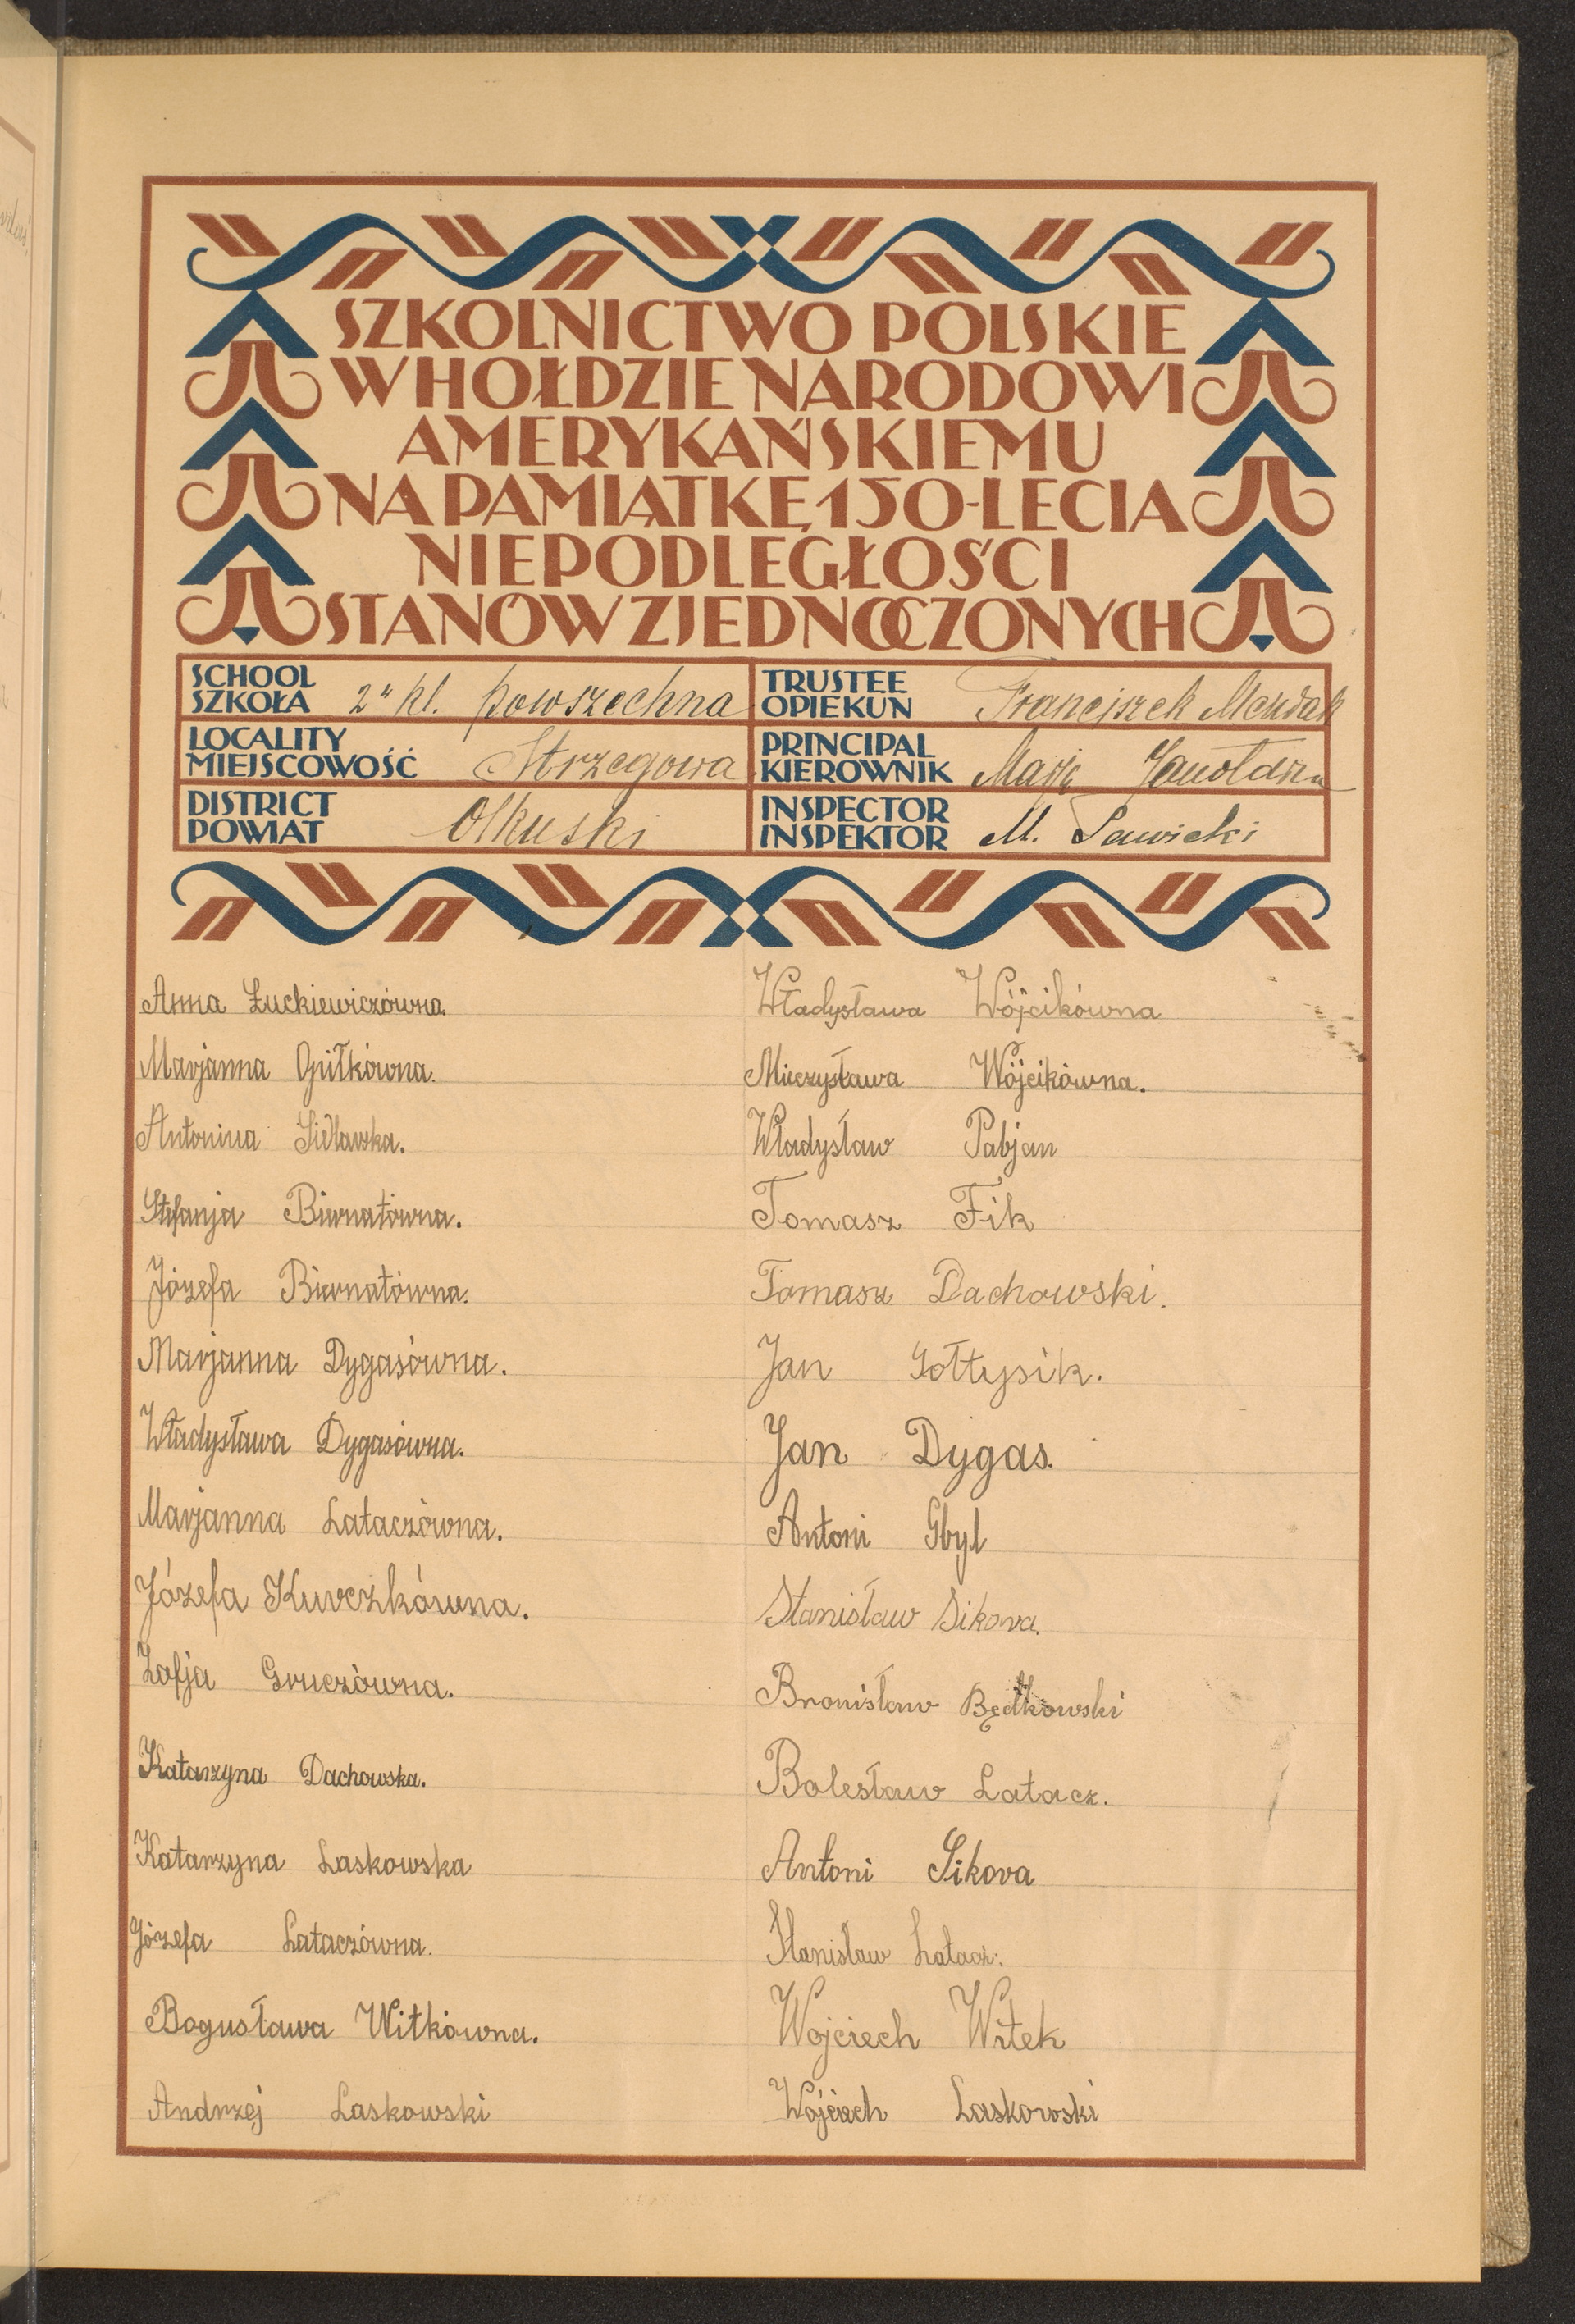 SZKOLNICTWO POLSKIE
W HOŁDZIE NARODOWI
AMERYKAŃSKIEMU
NA PAMIĄTKĘ 150-LECIA
NIEPODLEGŁOŚCI
STANÓW ZJEDNOCZONYCH
SCHOOL
SZKOŁA 2 kl. powszechna
TRUSTEE
OPIEKUN Franciszek
LOCALITY
MIEJSCOWOŚĆ Strzegowa
PRINCIPAL
KIEROWNIK Marja
DISTRICT
POWIAT Olkuski
INSPECTOR
INSPEKTOR M. Sawicki
Anna Łuckiewiczówna
Marjanna Gpiłkówna.
Antonina Sidławska.
Stefanja Biernatówna.
Józefa Biernatówna.
Marjanna Dygasówna.
Władysława Dygasówna.
Marjanna Lataczówna.
Józefa Kurczkówna.
Zofja Gruczówna.
Katarzyna Dachowska.
Katarzyna Laskowska
Józefa Lataczówna.
Bogusława Witkówna.
Andrzej Laskowski
Władysława Wójcikówna
Mieczysława Wójcikówna.
Władysław Pabjan
Tomasz Fik
Tomasz Dachowski.
Jan Sołtysik.
Jan Dygas.
Antoni Gbyl
Stanisław Sikora.
Bronisław Będkowski
Bolesław Latacz.
Antoni Sikora
Stanisław Latacz.
Wojciech Witek
Wojciech Laskowski